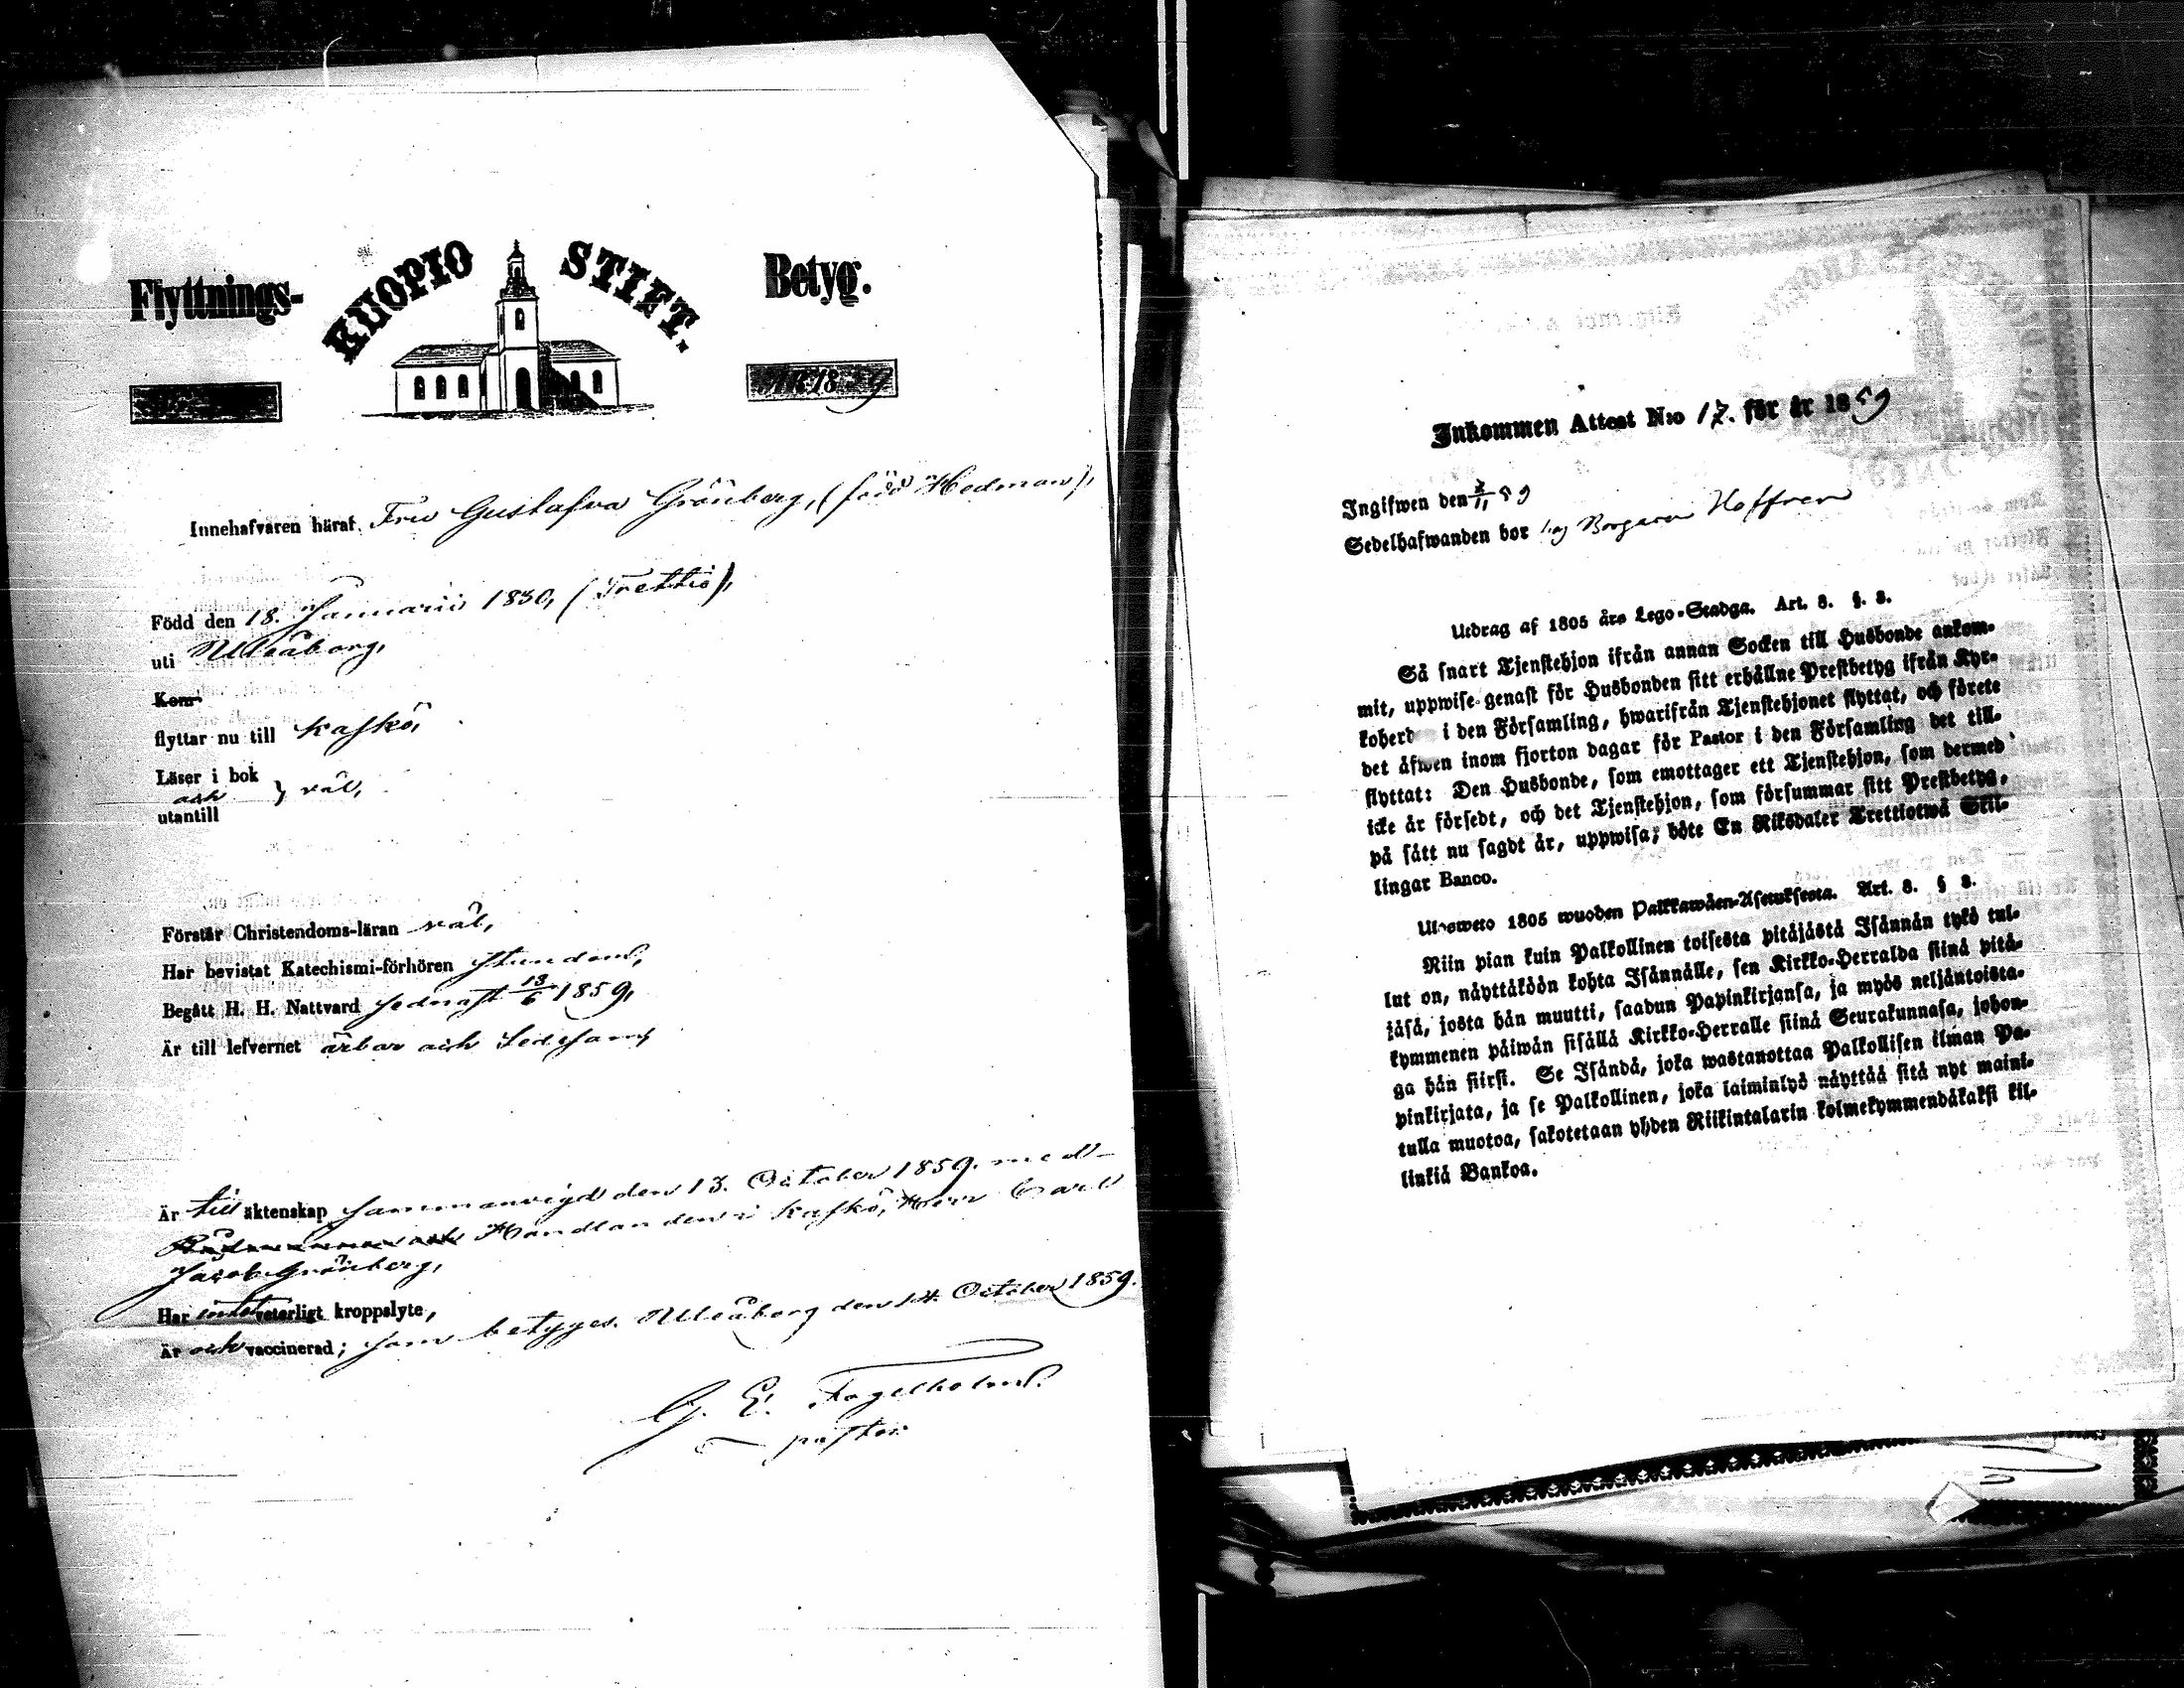 Flyttnings-
KUOPIO STIFT.
Betyg.
ÅR 1859
Innehafvaren häraf, Fru Gustafva Grönberg, (född Hedman),
Född den 18. Januarii 1830, (Trettio),
uti Uleåborg,
Kom
flyttar nu till Kaskö,
Läser i bok
och } väl,
utantill
Förstår Christendoms-läran väl,
Har bevistat Katechismi-förhören stundom,
Begått H. H. Nattvard sednast 13/6 1859,
Är till lefvernet ärbar och sedesam,
Är till äktenskap sammanvigd den 13. October 1859. med
Handlanden i Kaskö, Herr Carl
Jacob Grönberg,
Har intet veterligt kroppslyte,
Är och vaccinerad; som betygas. Uleåborg den 14. October 1859.
G. E. Fogelholm.
pastor
Inkommen Attest N:o 17. för år 1859
Ingifwen den 3/11 59
Sedelhafwanden bor hos Borgaren Hoffren
Utdrag af 1805 års Lego-Stadga. Art. 8. §. 8.
Så snart Tjenstehjon ifrån annan Socken till Husbonde ankom-
mit, uppwise genast för Husbonden sitt erhållne Prestbetyg ifrån Kyr-
koherd i den Församling, hwarifrån Tjenstehjonet flyttat, och förete
det äfwen inom fjorton dagar för Pastor i den Församling det till-
flyttat: Den Husbonde, som emottager ett Tjenstehjon, som dermed
icke är försedt, och det Tjenstehjon, som försummar sitt Prestbetyg,
på sätt nu sagdt är, uppwisa; böte En Riksdaler Trettiotwå Skil-
lingar Banco.
Ulosweto 1805 wuoden Palkkawäen-Asetuksesta. Art. 8. § 8.
Niin pian kuin Palkollinen toisesta pitäjästä Isännän tykö tul-
lut on, näyttäköön kohta Isännälle, sen Kirkko-Herralda siinä pitä-
jäsä, josta hän muutti, saadun Papinkirjansa, ja myös neljäntoista-
kymmenen päiwän sisällä Kirkko-Herralle siinä Seurakunnasa, johon-
ga hän siirsi. Se Isändä, joka wastanottaa Palkollisen ilman Pa-
pinkirjata, ja se Palkollinen, joka laiminlyö näyttää sitä nyt maini-
tulla muotoa, sakotetaan yhden Riikintalarin kolmekymmendäkaksi kil-
linkiä Bankoa.